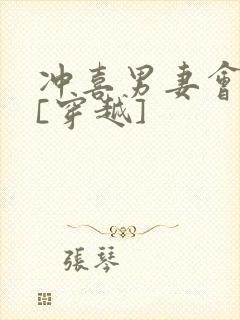 冲喜男妻會
[穿越]
張琴